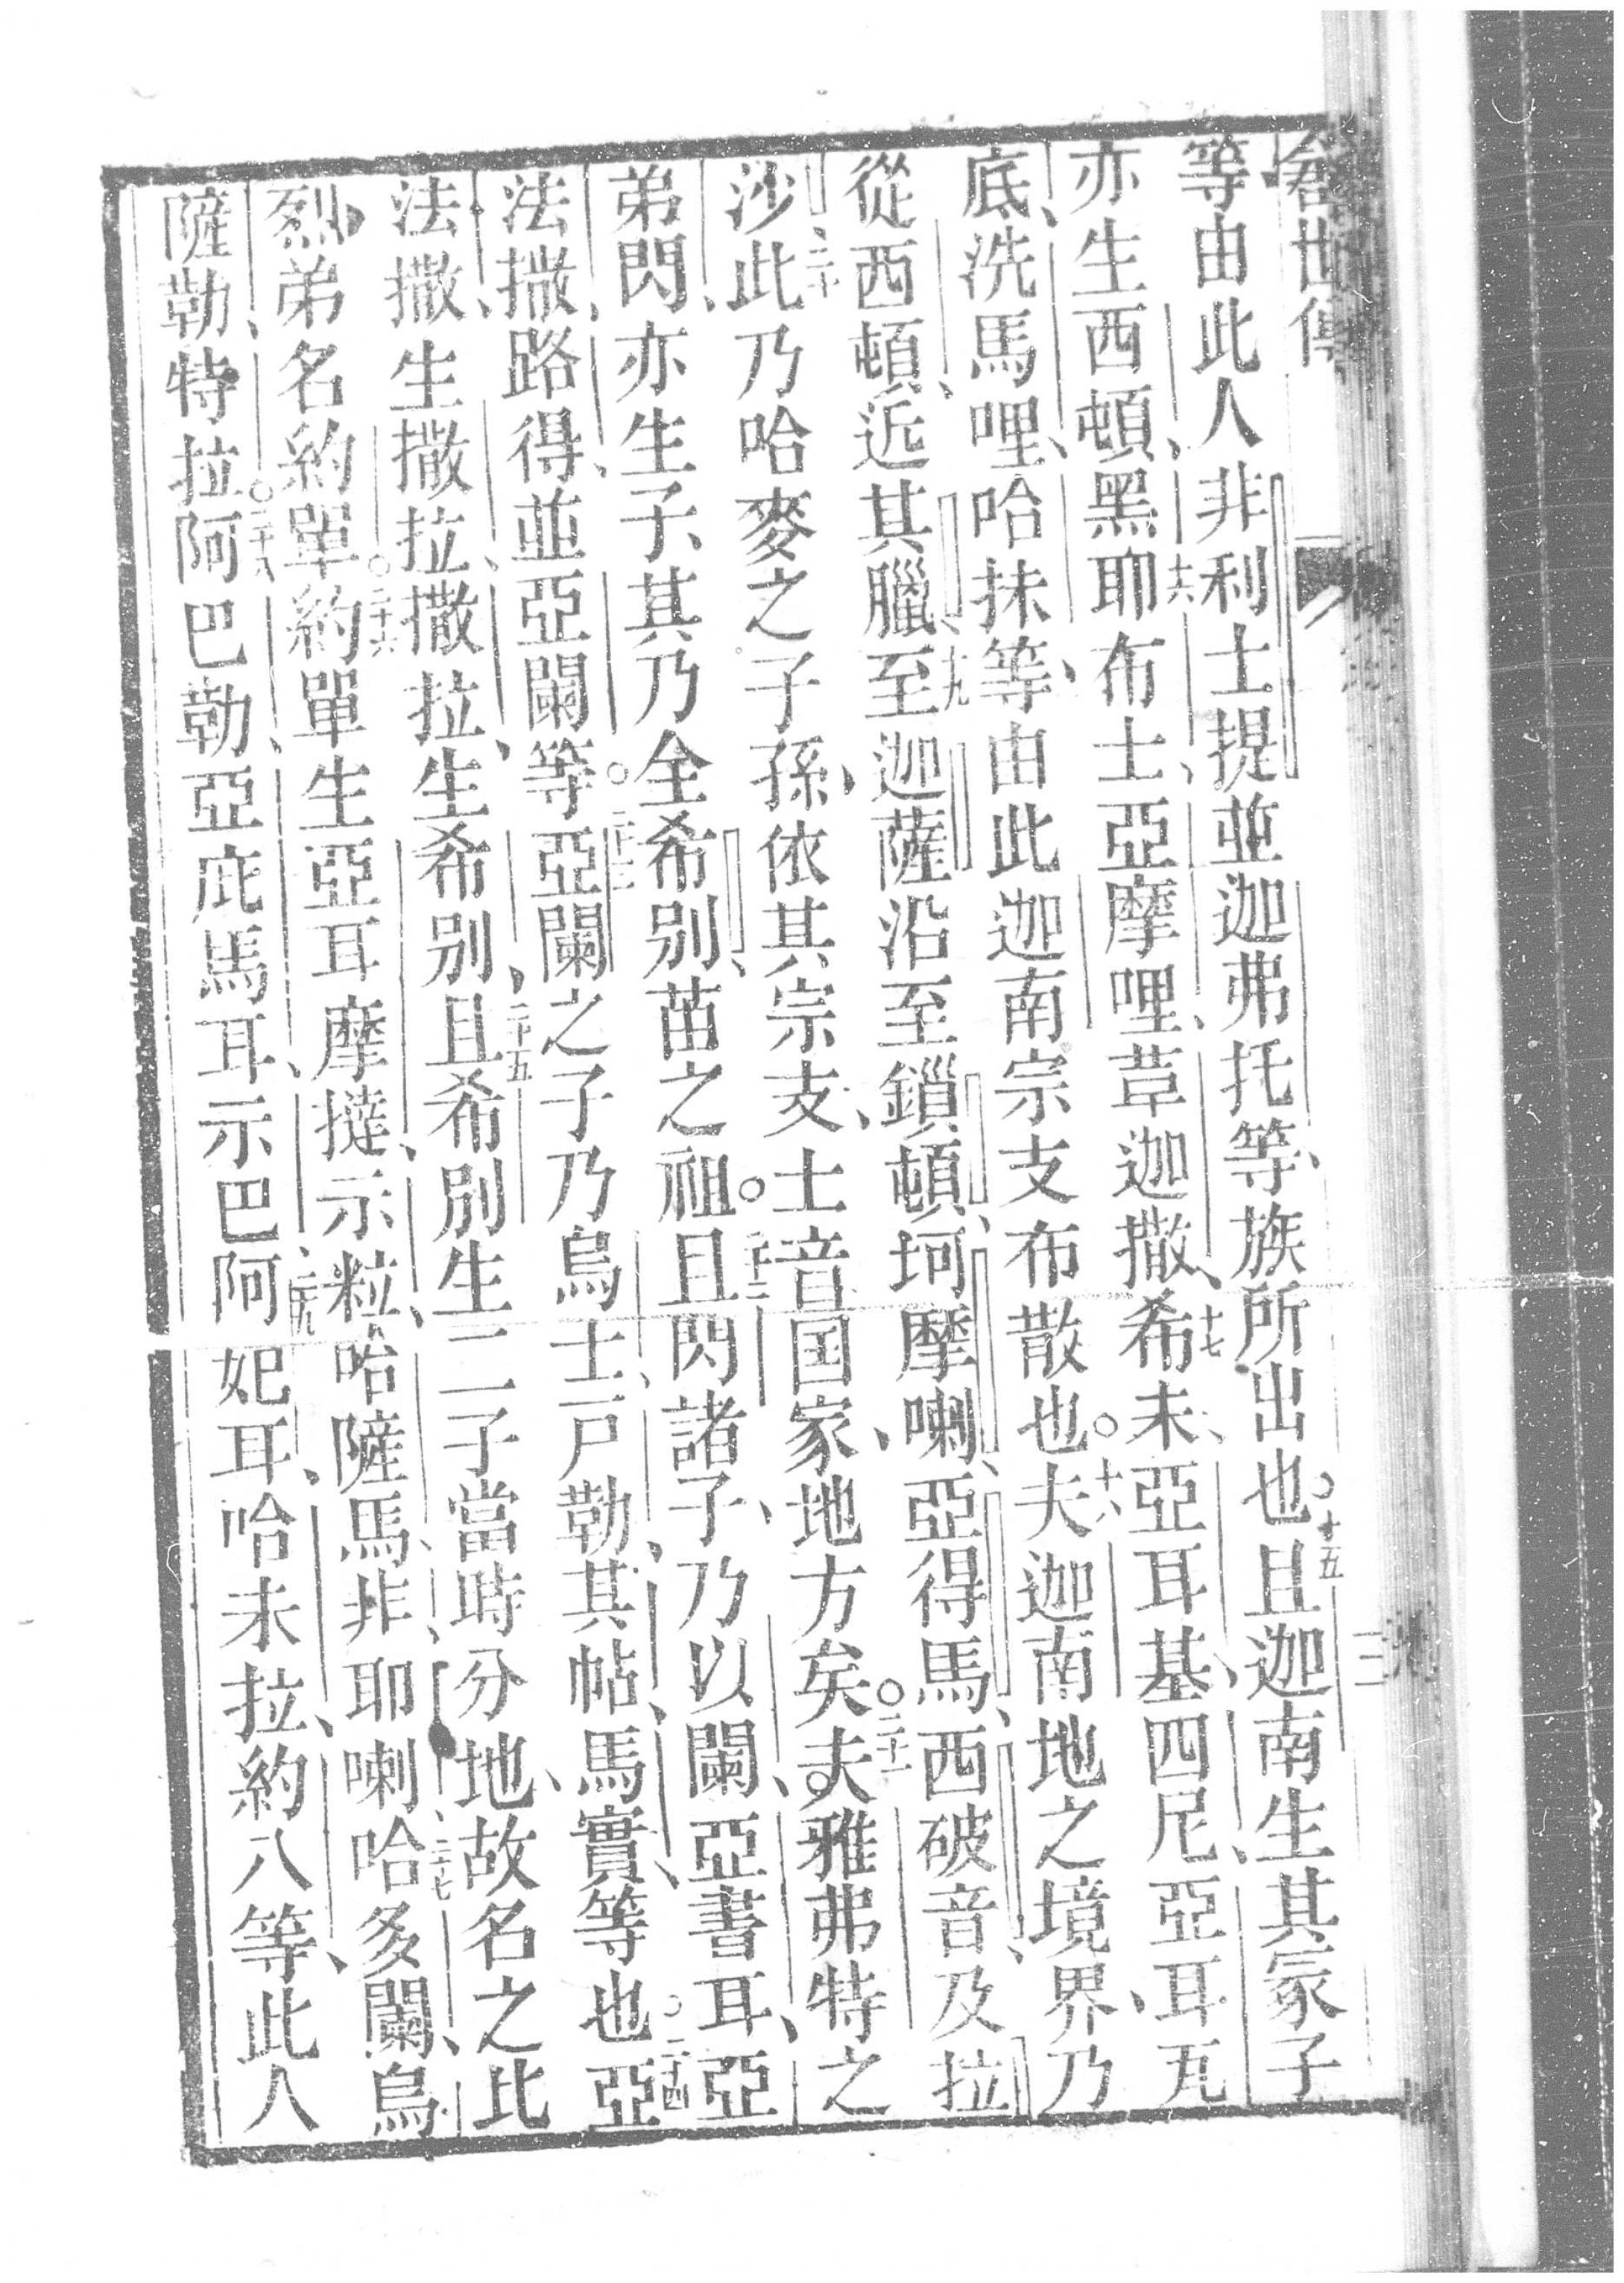 等由此人非利士提並迦弗托等、族所出也。十五且迦南生其冢子
亦生西頓、黑十六耶布士、亞摩哩、葦迦撒、十七希未、亞耳基、四尼、亞耳瓦
底、洗馬哩、哈抹等、由此迦南宗支布散也。十八夫迦南地之境界、乃
從西頓、近其臘、十九至迦薩沿至鎻頓、坷摩喇、亞得馬、西破音、及拉
沙、二十此乃哈麥之子孫、依其宗支、士音国家、地方矣。二十一夫雅弗特之
弟閃、亦生子、其乃全希別、苗之祖。二十二且閃諸子、乃以闌、亞書耳、亞
法撒、路得、並亞闌等。二十三亞闌之子乃烏士、戸勒、其帖、馬實、等也。二十四亞
法撒生撒拉、撒拉、生希別、二十五且希別生二子當時分地、故名之比
烈、弟名約單。二十六約單生亞耳摩撻、示粒、哈薩馬非、耶喇、二十七哈多闌、烏
薩勒、特拉。二十八阿巴勒、亞庇馬耳、示巴、二十九阿妃耳、哈未拉、約八等、此人
三